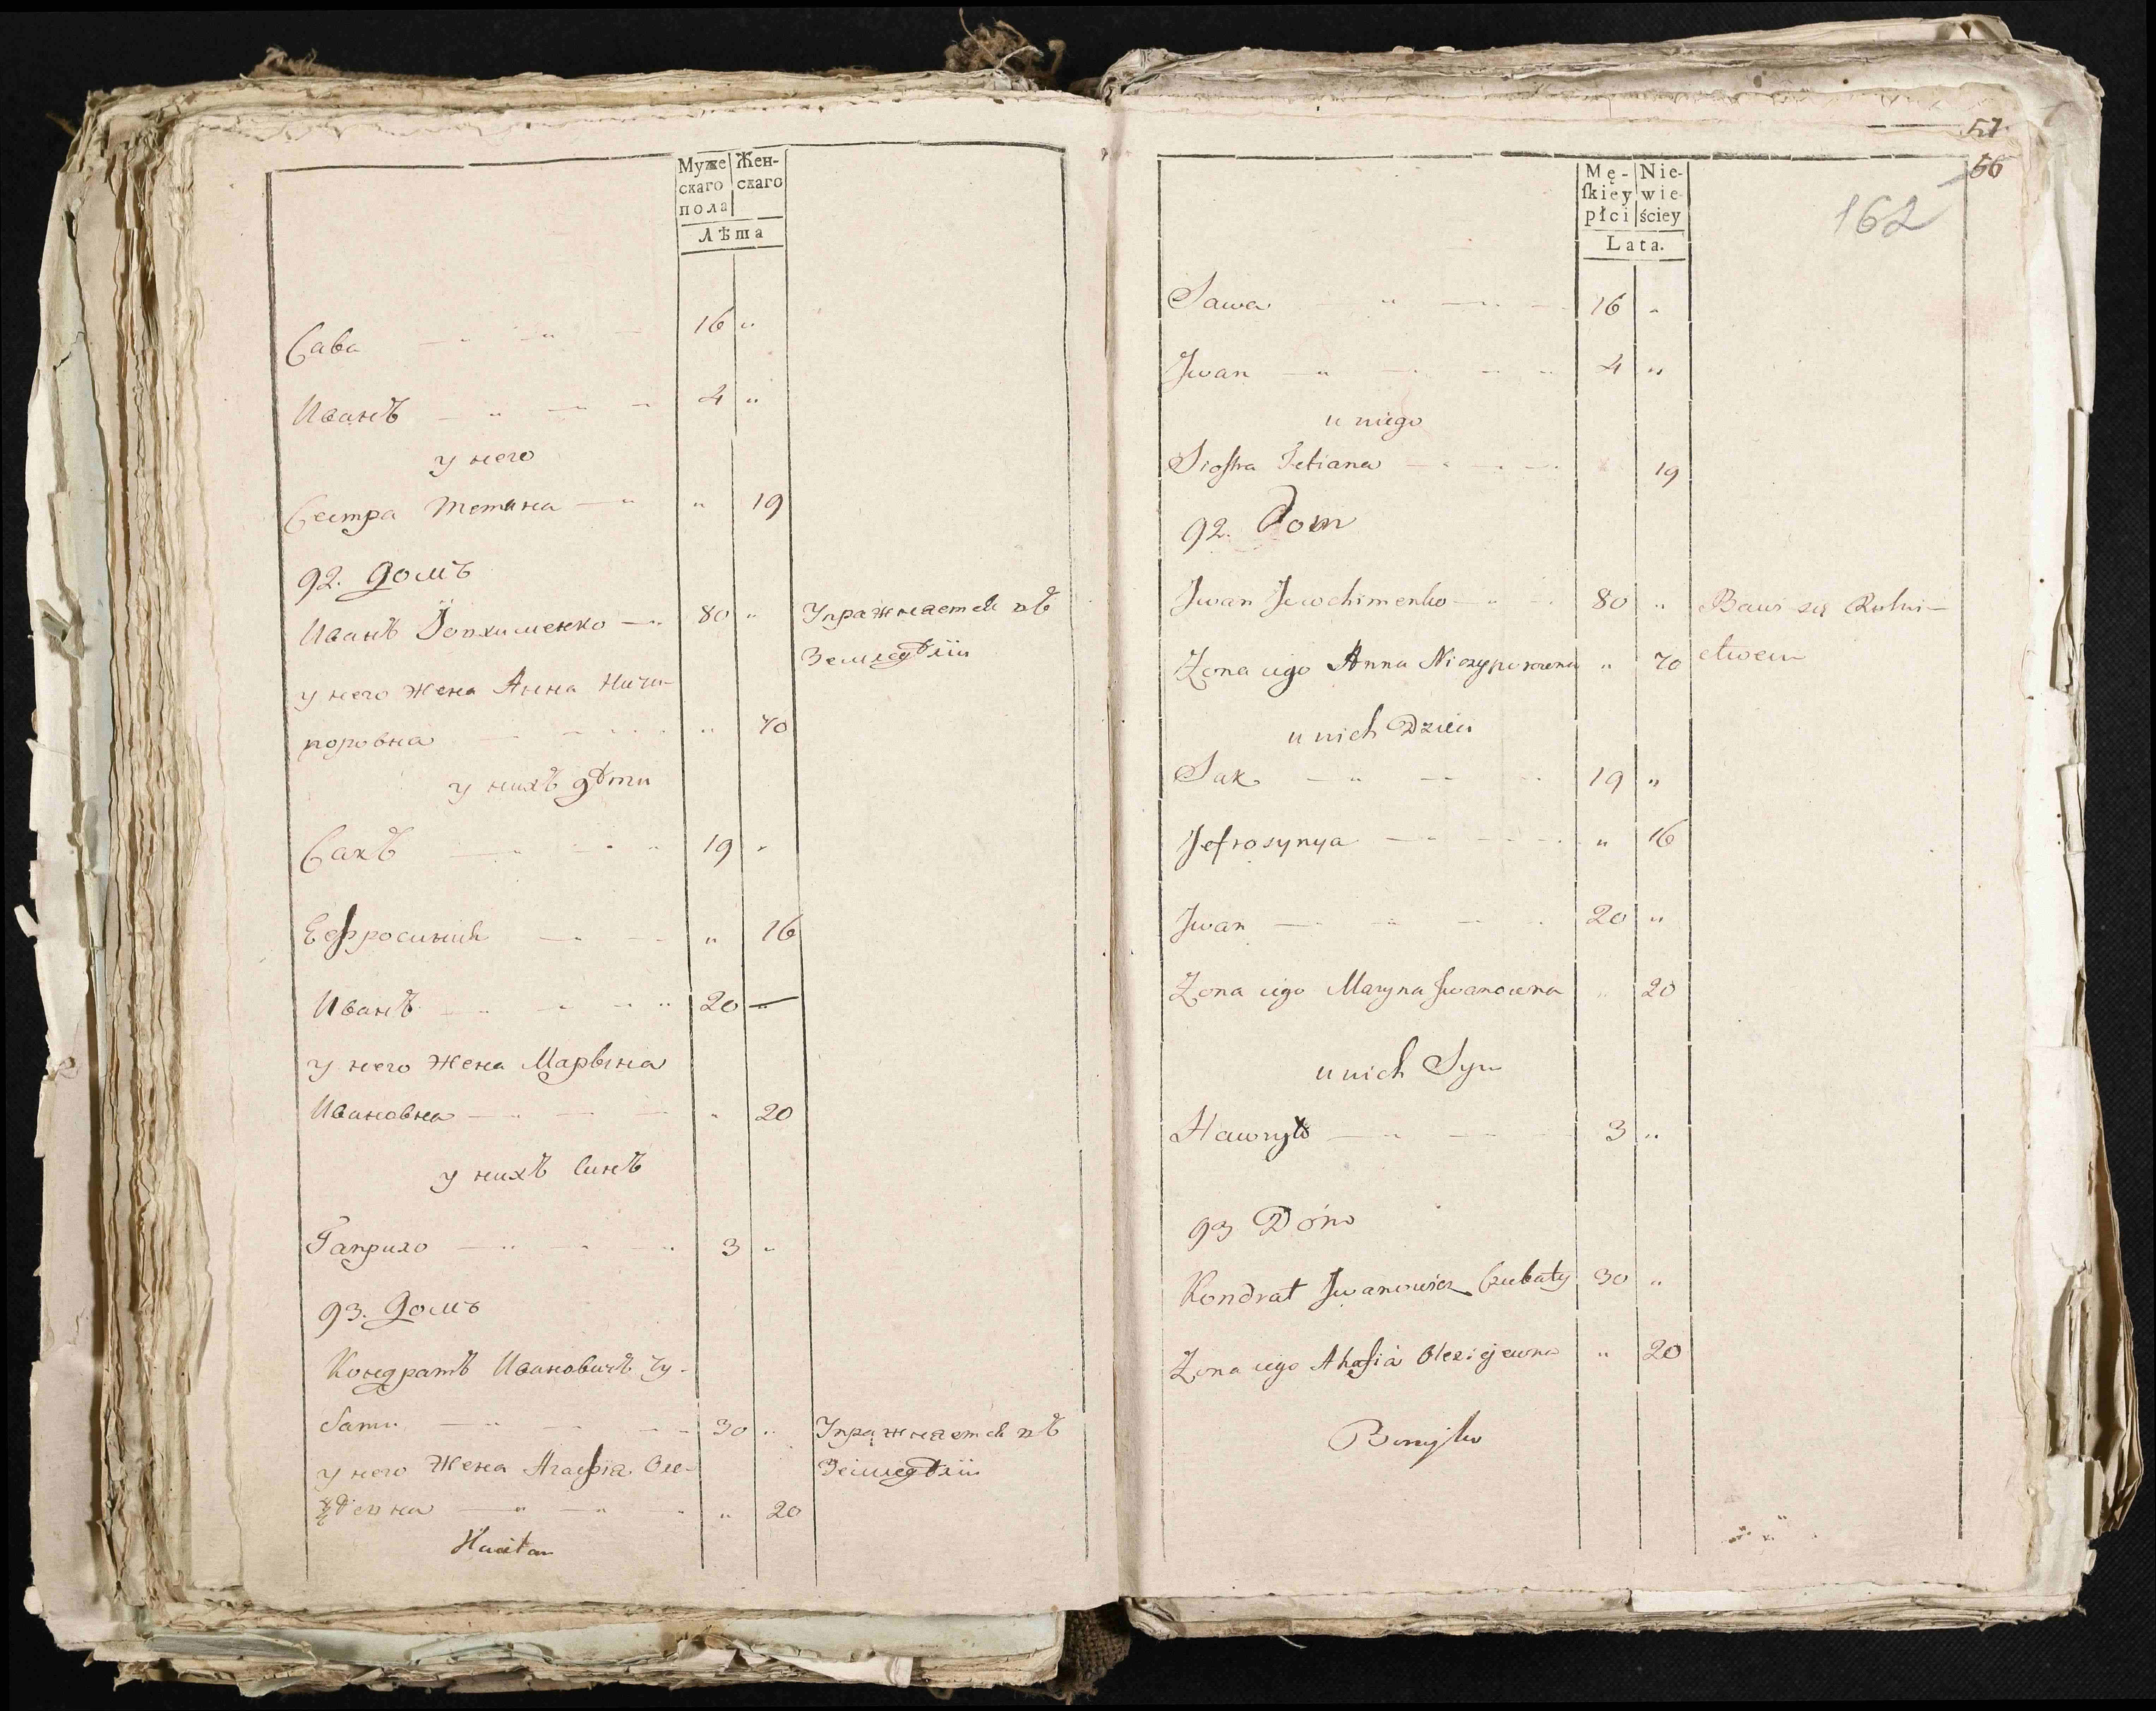 Муже Жен-
скаго скаго
пола
Лѣта
Сава 16 "
Иванъ 4 "
у него
Сестра Тетяна " 19
92. Домъ
Иванъ 80 " Упражняется въ
Земледѣліи
у него жена Анна Ничи-
поровна " 70
у нихъ дѣти
Сакъ 19 "
Ефросинія " 16
Иванъ 20 "
у него жена Марына
Ивановна " 20
у нихъ Синъ
Гаврило 3 "
93. Домъ
Кондратъ Ивановичъ Чу-
бати 30 " Упражняется въ
у него жена Агафія Оле- Земледѣліи
" 20
57
56
162
Mę- Nie-
ſkiey wie-
płci ściey
Lata.
Sawa 16 "
Jwan 4 "
u niego
Siostra Tetiana 19
92. Dom
Jwan Jewchimenko 80 " Bawi się Rolni-
Zona iego Anna Niczyporowna " 70 ctwem
u nich Dzieci
Sak 19 "
Jefrosynya " 16
Jwan 20 "
Zona iego Maryna Jwanowna " 20
u nich Syn
Hawryło 3 "
93 Dóm
Kondrat Jwanowicz Czubaty 30 "
Zona iego Ahafia Olexiejewna " 20